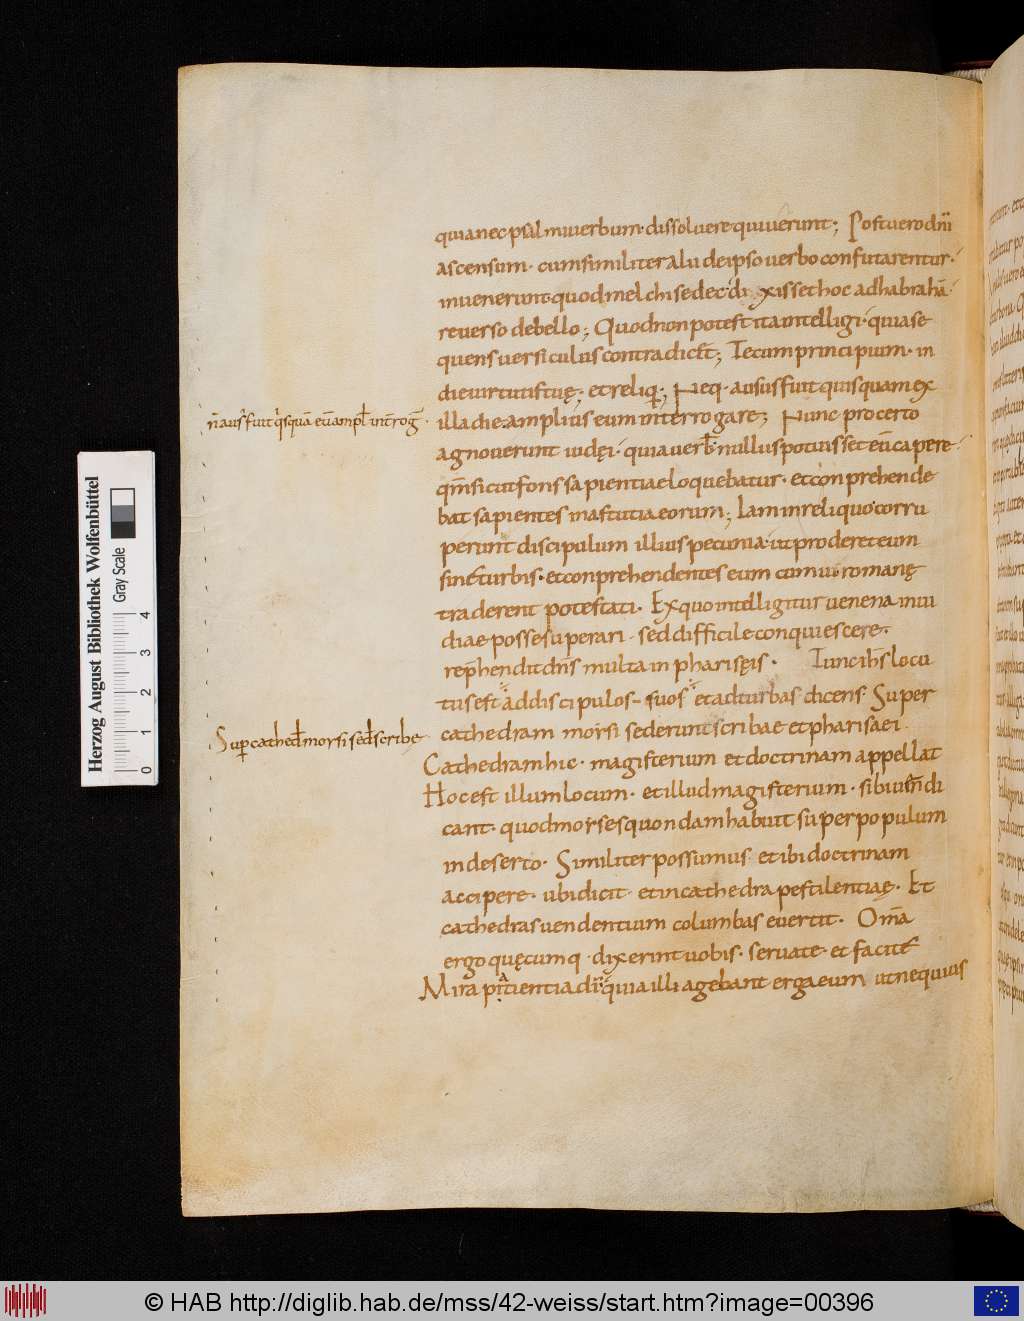 quia nec psalmi verbum dissolvere quiverunt; Post vero dn̄i
ascensum· cum similiter alii de ipso verbo confutarentur·
invenerunt quod melchisedec dixisset hoc ad habrahā·
reverso de bello; Quod non potest ita intelligi· quia se
quens versiculus contradicet; Tecum principium· in
die virtutis tuę· et reliq; Neq· ausus fuit quisquam ex
illa die amplius eum interrogare; Nunc pro certo
n̄ aus' fuit q'squā eū ampl' int̄roḡ·
agnoverunt iudęi· quia verb' nullus potuisset eū capere·
qm̄ sicut fons sapientiae loquebatur· et conprehende
bat sapientes in astutia eorum; Iam in reliquo corru
perunt discipulum illius pecunia· ut proderet eum
sine turbis· et conprehendentes eum cum vi· romanę
traderent potestati· Ex quo intelligitur venena invi
diae posse superari· sed difficile conquiescere·
reprehendit dn̄s multa in pharisęis· Tunc ih̄s locu
tus est ad discipulos suos et ad turbas dicens· Super
cathedram morsi sederunt scribae et pharisaei
Sup cathed' morsi sed' scribę
Cathedram hic· magisterium et doctrinam appellat
Hoc est illum locum· et illud magisterium· sibi vin̄di
cant· quod morses quondam habuit super populum
in deserto· Similiter possumus et ibi doctrinam
accipere· ubi dicit et in cathedra pestilentiaę· Et
cathedras vendentium columbas evertit· Omā
ergo quęcumq· dixerint vobis· servate et facite
Mira patientia dn̄i quia illi agebant erga eum ut nequius
Herzog August Bibliothek Wolfenbüttel
Gray Scale
0 1 2 3 4
© HAB http://diglib.hab.de/mss/42-weiss/start.htm?image=00396